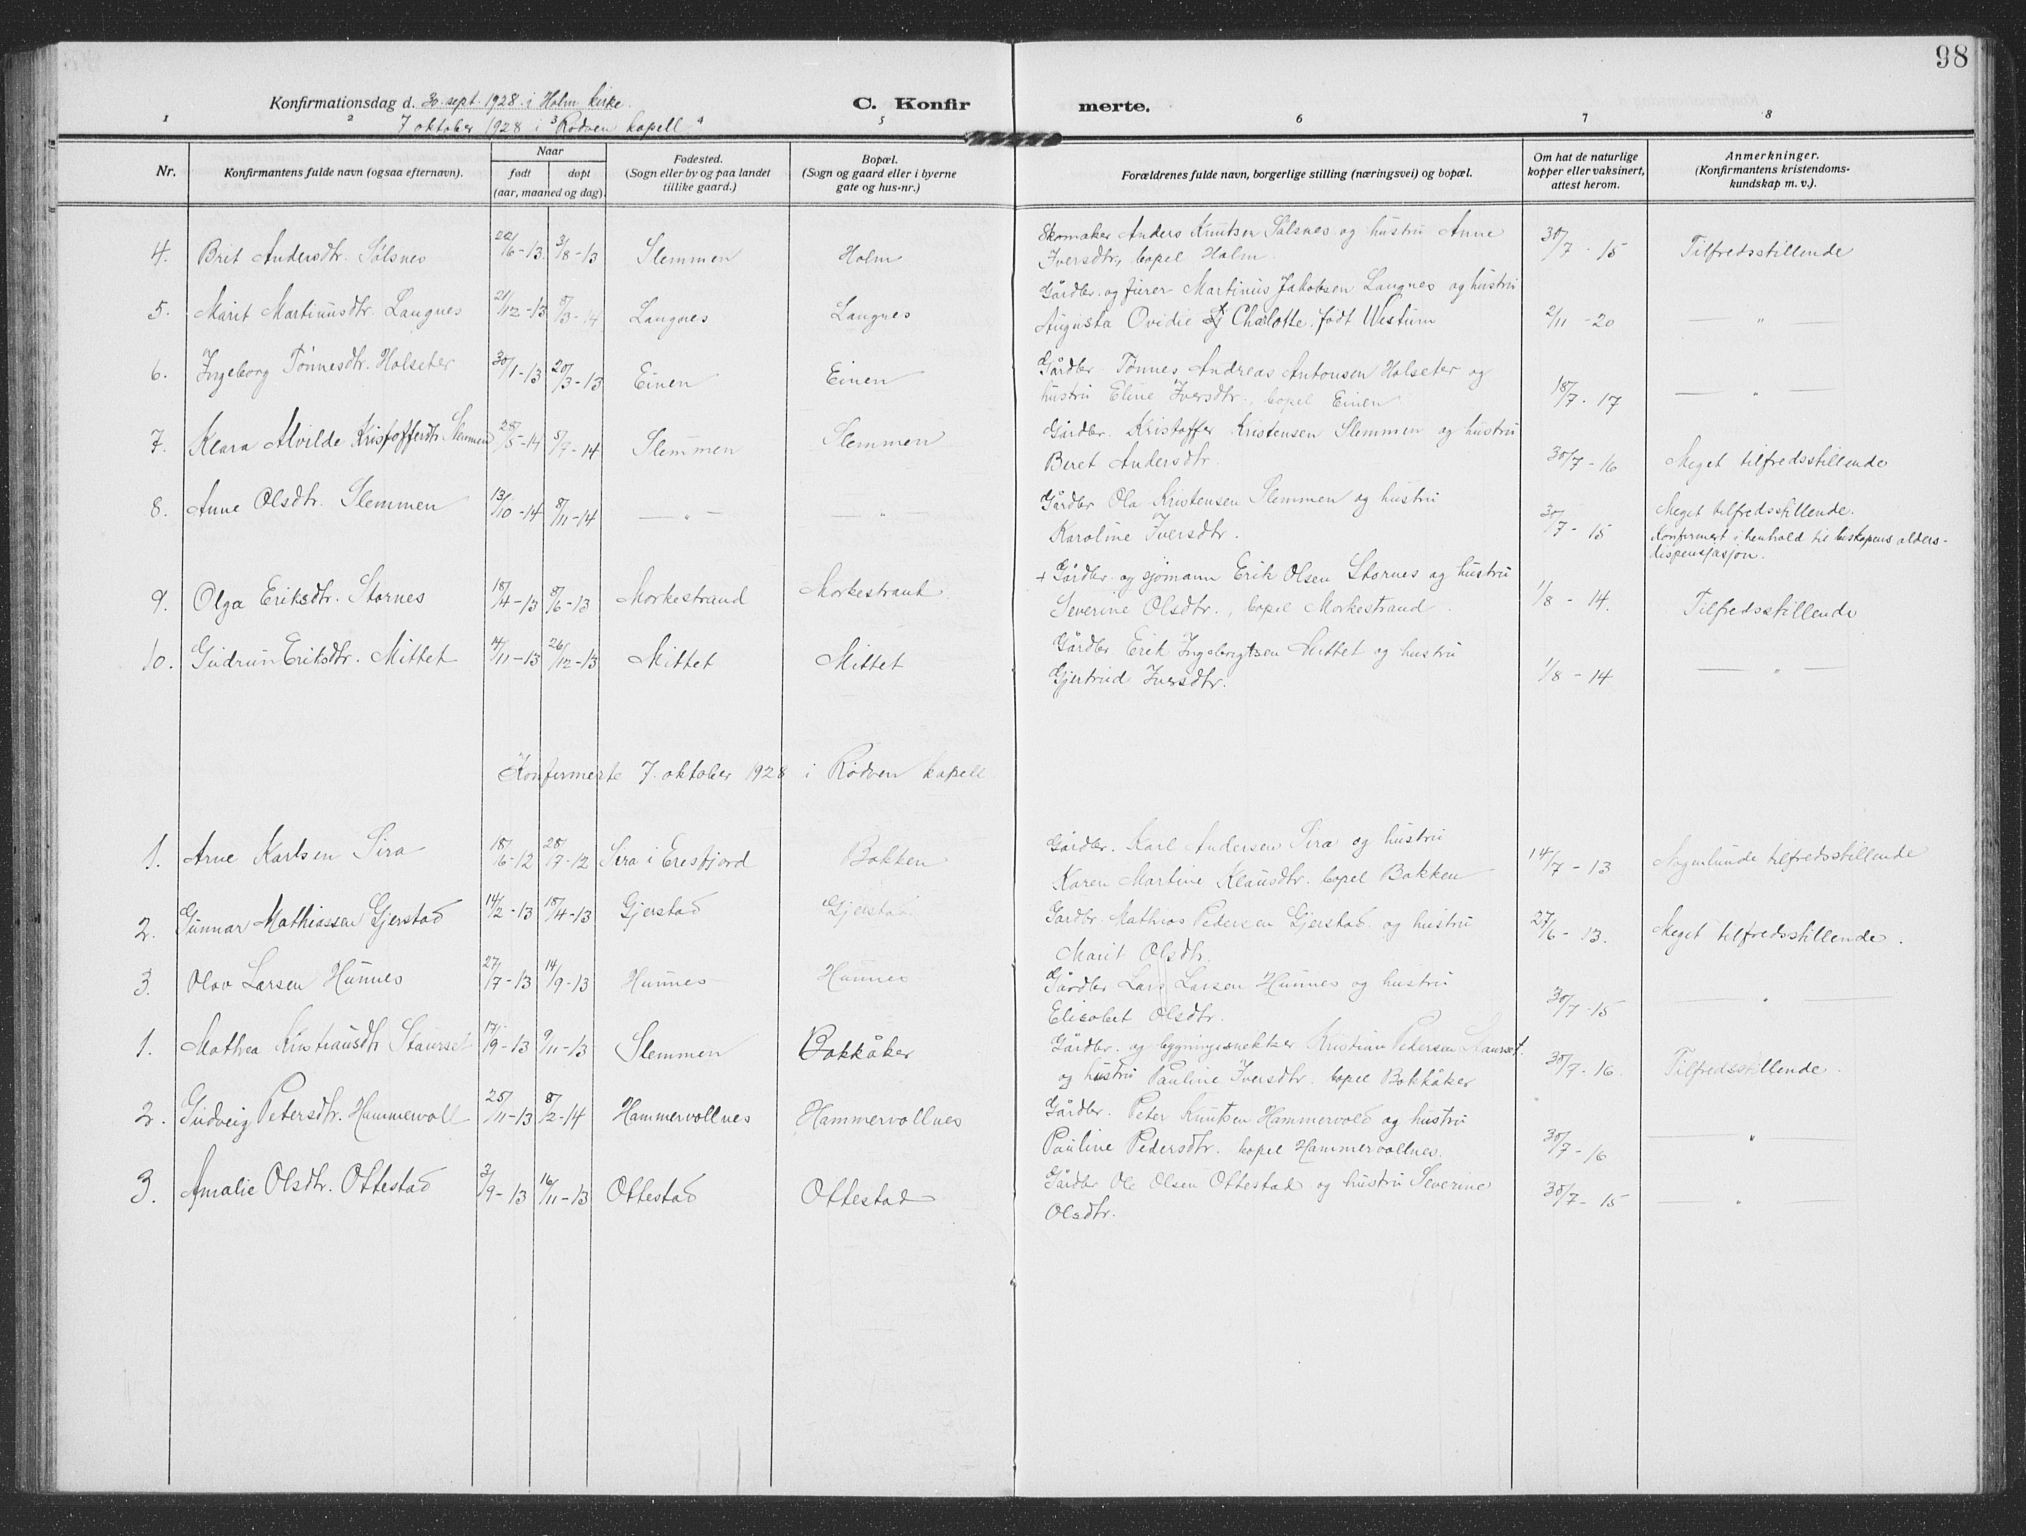 98
Konfirmationsdag d. 30. sept. 1928 i Holm kirke. C. Konfir merte.
7 oktober 1928 i Rødven kapell
1 2 3 4 5 6 7 8
Nr. Konfirmantens fulde navn (ogsaa efternavn). Naar født døpt (aar, maaned og dag). Fødested. (Sogn eller by og paa landet tillike gaard.) Bopæl. (Sogn og gaard eller i byerne gate og hus-nr.) Forældrenes fulde navn, borgerlige stilling (næringsvei) og bopæl. Om hat de naturlige kopper eller vaksinert, attest herom. Anmerkninger. (Konfirmantens kristendoms-kundskap m. v.).
4. Brit Andersdtr. Sølsnes 22/6-13 3/8-13 Slemmen Holm Skomaker Anders Knutsen Sølsnes og hustru Anne 30/7-15 Tilfredsstillende
Iversdtr., bopel Holm.
5. Marit Martinusdtr. Langnes 21/12-13 8/3-14 Langnes Langnes Gårdbr. og furer Martinus Jakobsen Langnes og hustru
Augusta Ovidie Charlotte født Westum 2/11-20 — " —
6. Ingeborg Tønnesdtr. Holseter 30/1-13 20/3-13 Einen Einen Gårdbr Tønnes Andreas Antonsen Holseter og
hustru Eline Iversdtr., bopel Einen 18/7-17 — " —
7. Klara Alvilde Kristofferdtr Slemmen 25/5-14 5/7-14 Slemmen Slemmen Gårdbr. Kristoffer Kristensen Slemmen og hustru
Beret Andersdtr. 30/7-16 Meget tilfredsstillende
8. Anne Olsdtr. Slemmen 13/10-14 8/11-14 — " — — " — Gårdbr Ola Kristensen Slemmen og hustru
Karoline Iversdtr. 30/7-15 Meget tilfredsstillende.
Konfirmert i henhold til biskopens alders-
dispensasjon.
9. Olga Eriksdtr. Stornes 18/4-13 8/6-13 Morkestrand Morkestrant + Gårdbr. og sjømann Erik Olsen Stornes og hustru
Severine Olsdtr., bopel Morkestrand. 1/8-14. Tilfredsstillende
10. Gudrun Eriksdtr. Mittet 14/11-13 26/12-13 Mittet Mittet Gårdbr Erik Ingebrigtsen Mittet og hustru
Gjertrud Iversdtr. 1/8-14 — " —
Konfirmerte 7. oktober 1928 i Rødven kapell
1. Arne Karlsen Sira 18/6-12 28/7-12 Sira i Eresfjord Bakken Gårdbr. Karl Andersen Sira og hustru
Karen Martine Klausdtr. bopel Bakken 14/7-13 Nogenlunde tilfredsstillende
2. Gunnar Mathiassen Gjerstad 14/2-13 18/4-13 Gjerstad Gjerstad Gardbr. Mathias Pedersen Gjerstad og hustru
Marit Olsdtr. 27/6-13. Meget tilfredsstillende.
3. Olav Larsen Hunnes 27/7-13 14/9-13 Hunnes Hunnes Gårdbr Lars Larsen Hunnes og hustru
Elisabet Olsdtr. 30/7-15 — " —
1. Mathea Kristiansdtr Staurset 17/9-13 9/11-13 Slemmen Bakkåker Gårdbr. og bygningssnekker Kristian Pedersen Staurset.
og hustru Pauline Iversdtr. bopel Bakkåker 30/7-16. Tilfredsstillende.
2. Gudveig Petersdtr. Hammervoll 25/11-13 8/2-14 Hammervollnes Hammervollnes Gårdbr. Peter Knutsen Hammervold og hustru
Pauline Pedersdtr. bopel Hammervollnes. 30/7-16 — " —
3. Amalie Olsdtr. Ottestad 3/9-13 16/11-13 Ottestad Ottestad Gårdbr Ole Olsen Ottestad og hustru Severine
Olsdtr. 30/7-15 — " —